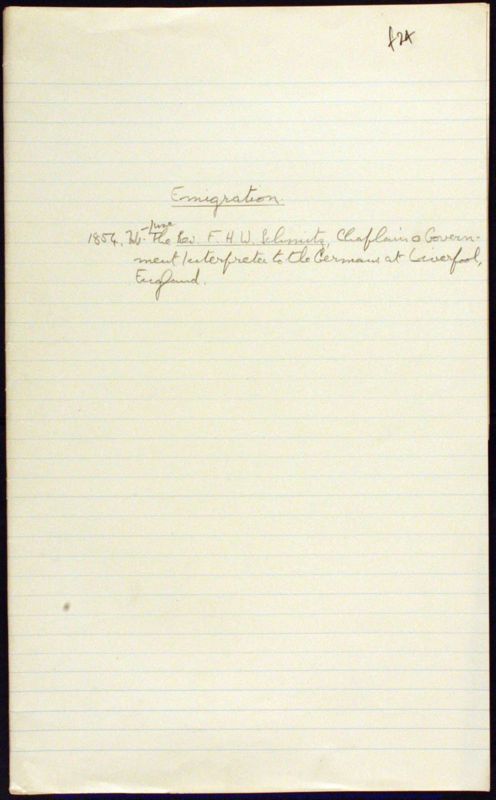 f24
Emigration.
1854, Feb.-June The Rev. F. H. W. Schmitz, Chaplain & Govern-
ment Interpreter to the Germans at Liverpool,
England.